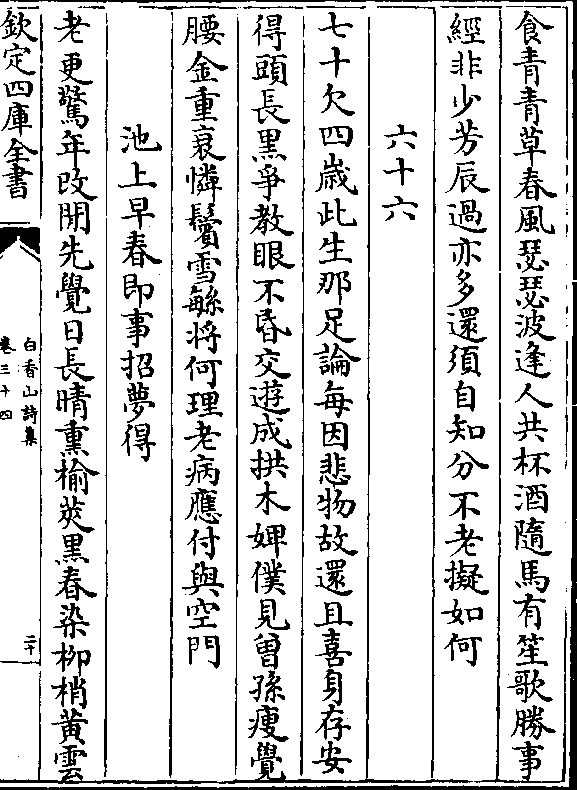 食青青草春風瑟瑟波逢人共杯酒隨馬有笙歌勝事
經非少芳辰過亦多還須自知分不老擬如何
六十六
七十欠四歲此生那足論每因悲物故還且喜身存安
得頭長黑爭教眼不昏交遊成拱木婢僕見曾孫瘦覺
腰金重衰憐鬢雪繇將何理老病應付與空門
池上早春即事招夢得
老更驚年改閒先覺日長晴熏榆莢黑春染栁梢黃雲
欽定四庫全書
白香山詩集
卷三十四
二十